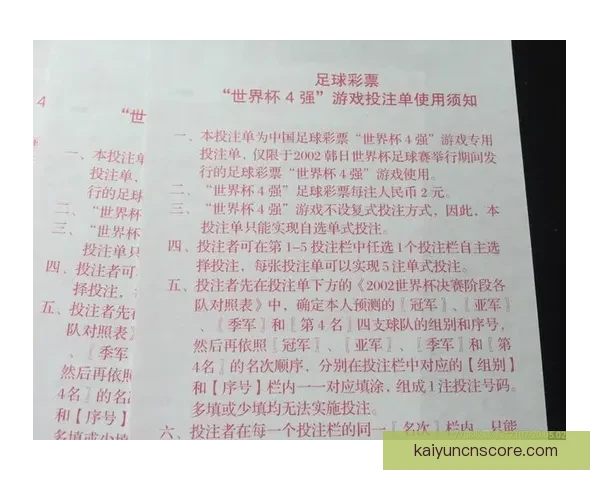 足球彩票
“世界杯 4 强”游戏投注单使用须知
一、本投注单为中国足球彩票“世界杯 4 强”游戏专用
投注单，仅限于2002 韩日世界杯足球赛举行期间发
行的足球彩票“世界杯 4 强”游戏使用。
二、“世界杯 4 强”足球彩票每注人民币 2 元。
三、“世界杯 4 强”游戏不设复式投注方式，因此，本
投注单只能实现自选单式投注。
四、投注者可在第 1-5 投注栏中任选 1个投注栏自主选
择投注，每张投注单可以实现 5 注单式投注。
五、投注者先在投注单下方的《2002世界杯决赛阶段各
队对照表》中，确定本人预测的〖冠军〗、〖亚军〗
、〖季军〗和〖第 4 名〗四支球队的组别和序号，
然后再依照〖冠军〗、〖亚军〗、〖季军〗和〖第
4名〗的名次顺序，分别在投注栏中对应的【组别】
和【序号】栏内一一对应填涂，组成 1 注投注号码。
多填或少填均无法实施投注。
六、投注者在每一个投注栏的同一〖名次〗栏内，只能
4
“世
一、本投注单
投注单，
行的足球
二、“世界杯
三、“世界杯
投注单只
四、投注者可
择投注，
五、投注者先在
队对照表》
、〖季军
然后再依照
4名〗的名
和【序号】
多填或少填
kaiyuncnscore.com